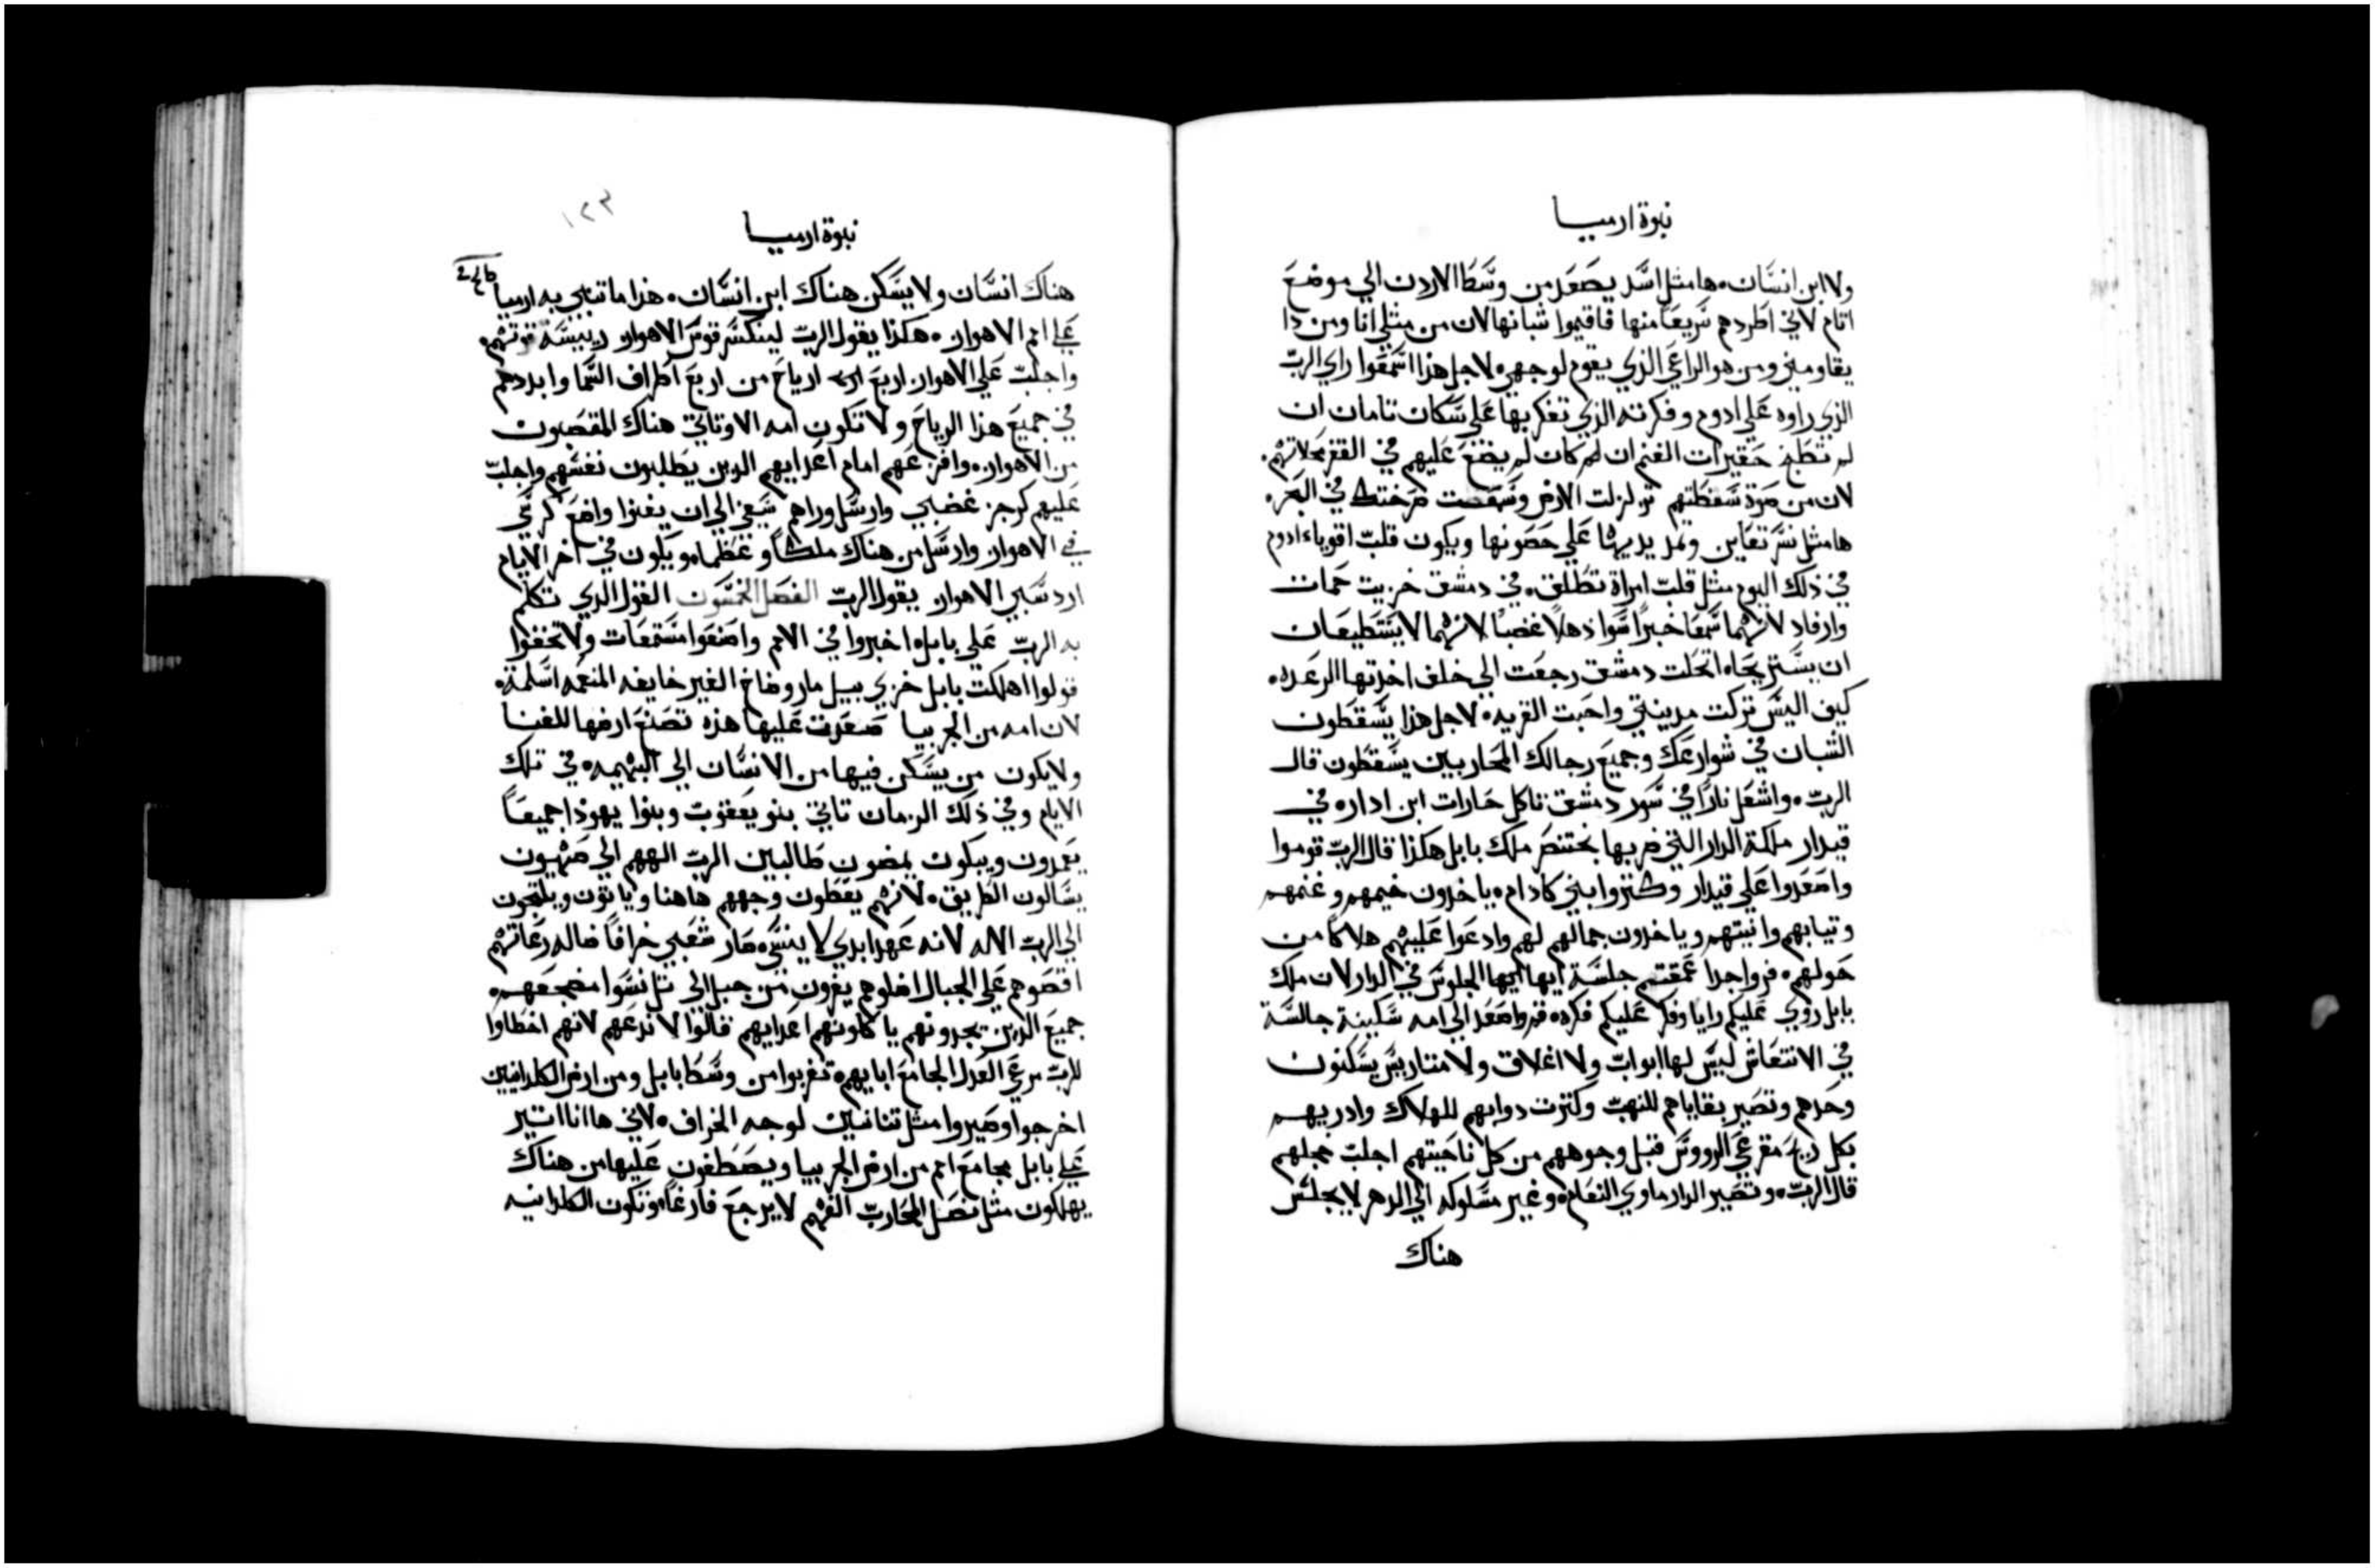 نبوة ارميا
ولا ابن انسان. ها مثل اسد يصعد من وسط الاردن الي موضع
اتام لاني اطردهم سريعا منها فاقيموا شبانها لان من مثلي انا ومن ذا
يقاومني ومن هو الراعي الذي يقوم لوجهي. لاجل هذا اسمعوا راي الرب
الذي راوه علي ادوم وفكرته الذي تفكر بها علي سكان تامان ان
لم حقيرات الغنم ان لم كان لم يضع عليهم في القفر محلاتهم.
لان من صوة سقطتهم تزلزلت الارض في البحر.
ها مثل نسر تعاين ويمد يديها علي حصونها ويكون قلب اقوياء ادوم
في ذلك اليوم مثل قلب امراة تطلق. في دمشق خزيت حمات
وارفاد لانهما سمعا خبرا سوا ذهلا غضبا لانهما لا يستطيعان
ان انحلت دمشق رجعت الي خلف اخذتها الرعده.
كيف اليس تركت مدينتي واحبت القريه. لاجل هذا يسقطون
الشبان في شوارعك وجميع رجالك المحاربين يسقطون قال
الرب. واشعل نارا في سور دمشق تاكل حارات ابن اداره في
قيدار ملكة الدار التي ضربها بختنصر ملك بابل هكذا قال الرب قوموا
واصعدوا علي قيدار بني كادام. ياخذون خيمهم وغنمهم
وتيابهم وانيتهم وياخذون جمالهم لهم وادعوا عليهم هلاكا من
حولهم. فروا جدا جلسة ايها الجلوس في الدار لان ملك
بابل روي عليكم رايا وفكر عليكم فكره قوموا اصعد الي امه سكينة جالسة
في الانتعاش ليس لها ابواب ولا اغلاق ولا متاريس يسكنون
وحدهم وتصير بقاياهم للنهب وكترت دوابهم للهلاك واذريهم
بكل ريح الرووس قبل وجوههم من كل ناحيتهم اجلب خجلهم
قال الرب. وتصير الدار ماوي النعام وغير مسلوكه الي الدهر لا يجلس
هناك
١٢٣
نبوة ارميا
هناك انسان ولا يسكن هناك ابن انسان. هذا ما تنبي به ارميا
علي امم الاهواز. هكذا يقول الرب لينكسر قوس الاهواز قوتهم.
واجلب علي الاهواز اربع ارياح من اربع اطراف السما وابددهم
في جميع هذا الرياح ولا تكون امه الا وتاتي هناك المقصيون
من الاهواز. وافزعهم امام اعدايهم الذين يطلبون نفسهم واجلب
عليهم كرجز غضبي وارسل وراهم سيفي الي ان يفنوا واضع كرسي
في الاهواز وارسل من هناك ملكا وعظما. ويكون في اخر الايام
ارد سبي الاهواز يقول الرب الفصل الخمسون القول الذي تكلم
به الرب علي بابل. اخبروا في الامم واصنعوا مستمعات ولا تخفوا
قولوا اهلكت بابل خزي بيل ماروضاخ الغير خايفه المنعمه اسلمت.
لان امه من الجربيا صعدت عليها هذه تصنع ارضها للفنا
ولا يكون من يسكن فيها من الانسان الي البهيمه. في تلك
الايام وفي ذلك الزمان تاتي بنو يعقوب وبنوا يهوذا جميعا
يعمدون ويبكون يمضون طالبين الرب الههم الي صهيون
يسالون الطريق. لانهم يعطون وجههم هاهنا وياتون ويلتجون
الي الرب الاله لانه عهد ابدي لا ينسي. صار شعبي خرافا ضاله رعاتهم
اقصوهم علي الجبال اضلوهم يغرون من جبل الي تل نسوا مضجعهم.
جميع الذين يجدونهم ياكلونهم اعدايهم قالوا لا ندعهم لانهم اخطاوا
للرب مرعي العدل الجامع ابايهم. تغربوا من وسط بابل ومن ارض الكلدانيين
اخرجوا وصيروا مثل تنانين لوجه الخراف. لاني ها انا اتير
علي بابل مجامع امم من ارض الجربيا ويصطفون عليها من هناك
يهلكون مثل نصل المحارب الفهم لا يرجع فارغا. وتكون الكلدانيه